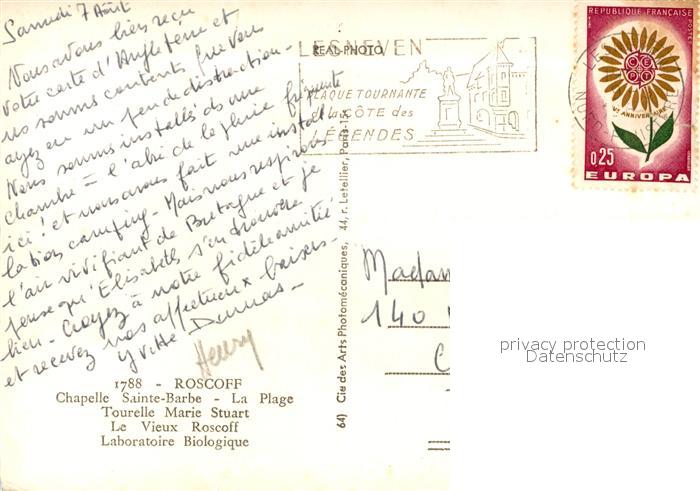 Samedi 7 Août
Nous avons bien reçu
votre carte d'Angleterre et
ns sommes contents que vous
ayez eu un peu de distraction -
Nous sommes installés ds une
chambre = l'abri de la pluie fréquente
ici ! et nous avons fait une instal-
lation camping - Mais nous respirons
l'air vivifiant de Bretagne et je
pense qu'Elisabeth s'en trouvera
bien - Croyez à notre fidèle amitié
et recevez nos affectueux baisers -
Yvette Dumas -
Henry
1788 - ROSCOFF
Chapelle Sainte-Barbe - La Plage
Tourelle Marie Stuart
Le Vieux Roscoff
Laboratoire Biologique
64) Cie des Arts Photomécaniques, 44, r. Letellier, Paris-15e
REAL-PHOTO
LESNEVEN
PLAQUE TOURNANTE
de la CÔTE des
LÉGENDES
REPUBLIQUE FRANÇAISE
POSTES
CEPT
Ve ANNIVERSAIRE
0,25
EUROPA
Madam
140
privacy protection
Datenschutz